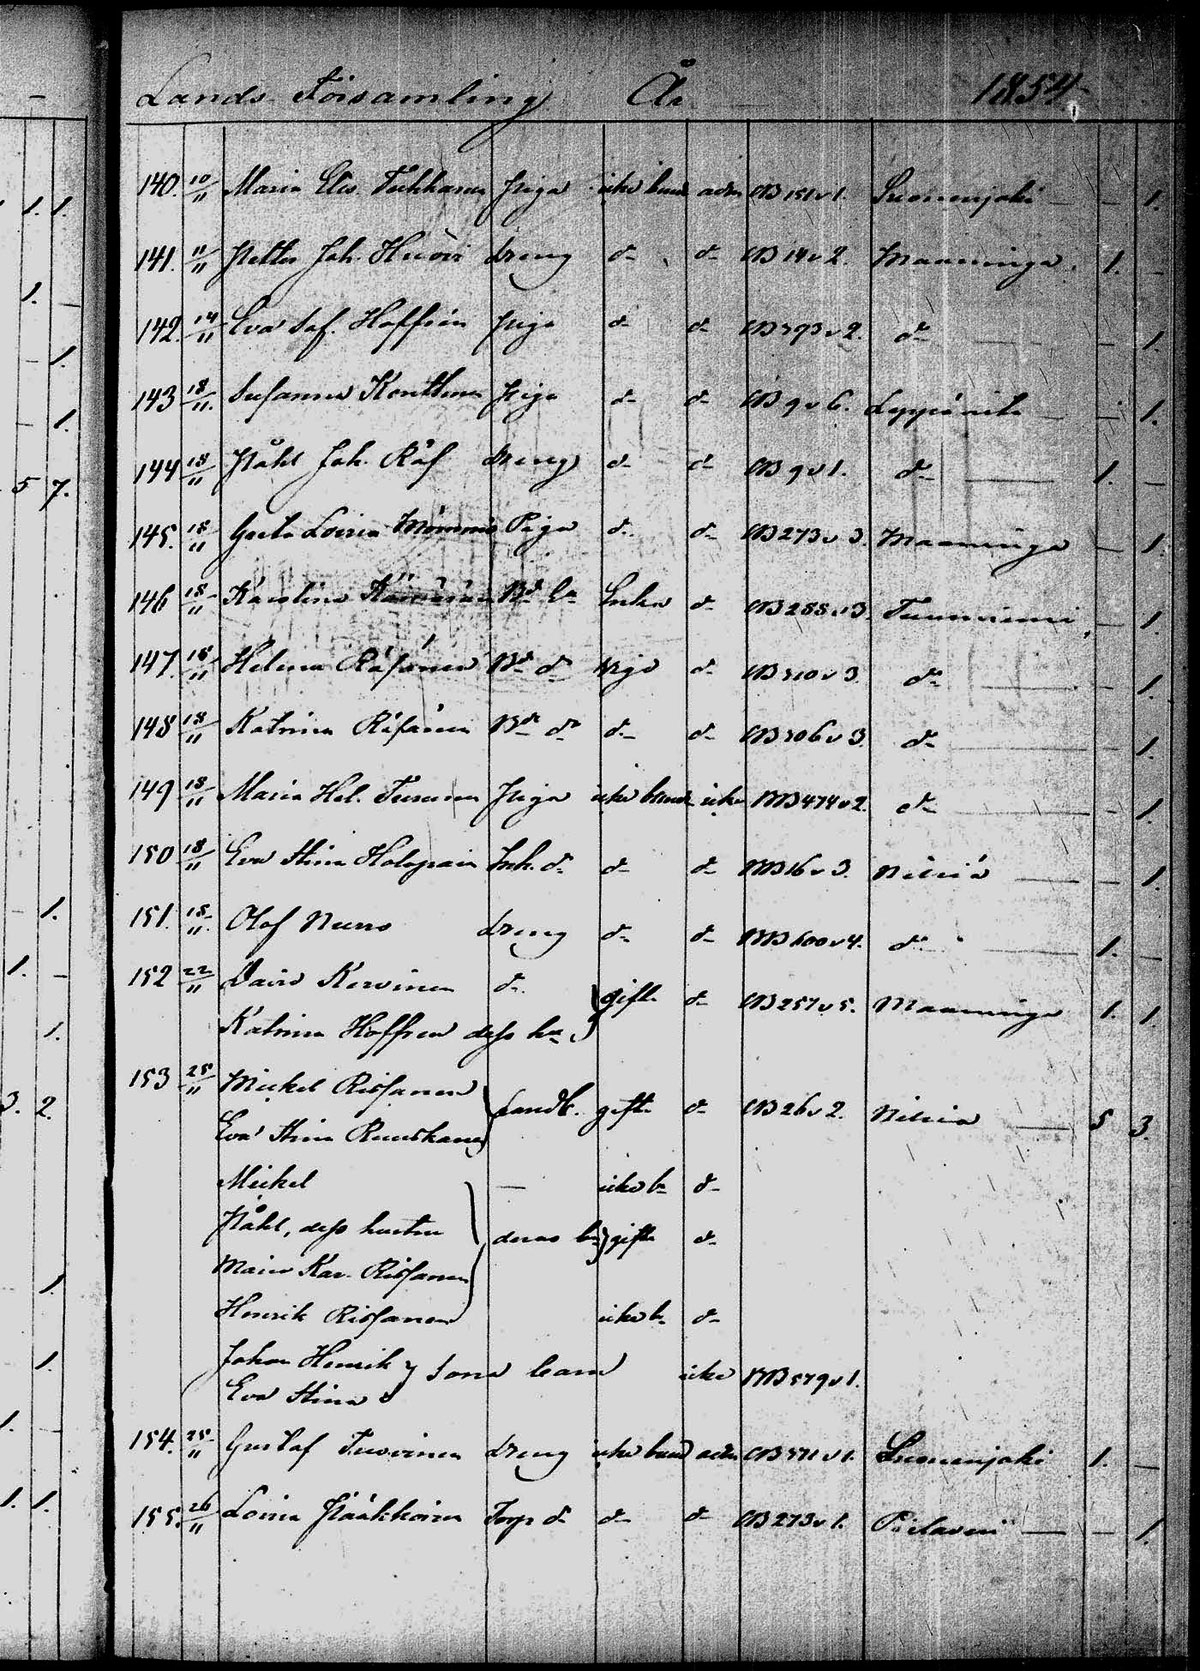 Lands Församling År 1854
1. 1.
140. 10/11 Maria Elis. Tuhkanen piga icke bund adm CB 151 v 1. Suonenjoki — — 1.
141. 11/11 Petter Joh. Huovi dreng d:o d:o CB 14 v 2. Maaninga. 1. —
1. —
142. 14/11 Eva Sof. Hoffrén piga d:o d:o CB 393 v 2. d:o — — 1.
— 1.
143 18/11. Susanna Konttinen piga d:o d:o CB 9 v 6. Leppävirta — — 1.
— 1.
144 18/11 Påhl Joh. Räf dreng d:o d:o CB 9 v 1. d:o — 1. —
5 7.
145. 18/11 Greta Lovisa Piga d:o d:o CB 273 v 3. Maaninga — 1.
146 18/11 Karolina Bd. Enka d:o CB 288 v 3. Tuusniemi — 1.
147. 18/11 Helena Räsänen Bd. d:o d:o CB 310 v 3. d:o — — 1.
148 18/11 Katrina Räsänen Bd. d:o d:o d:o CB 306 v 3. d:o — — 1.
149 18/11 Maria Hel. Turunen piga icke bund icke BB 474 v 2. d:o — — 1.
150 18/11 Eva Stina Holopain Inh. d:o d:o d:o BB 16 v 3. Nilsiä — — 1.
— 1.
151. 18/11. Olof dreng d:o d:o BB 600 v 4. d:o — 1. —
1. —
152 22/11 David Kervinen d:o } gifta d:o CB 257 v 5. Maaninga 1. 1.
1. Katrina Hoffren dess hu }
153 25/11 Mickel Rissanen } Landb. gifta d:o CB 26 v 2. Nilsiä — 5 3.
3. 2. Eva Stina Ruuskanen }
Mickel — icke b. d:o
Påhl, dess hustru } deras b. } gifta d:o
1. Maria Kar. Rissanen }
Henrik Rissanen icke b. d:o
1. Johan Henrik } Sons barn icke BB 579 v 1.
Eva Stina }
1. — 154. 25/11 Gustaf Tuovinen dreng icke bund adm CB 511 v 1. Suonenjoki 1. —
1. 1. 155. 26/11 Lovisa Pääkkönen Torp. d. d:o d:o CB 273 v 1. Pielavesi — — 1.